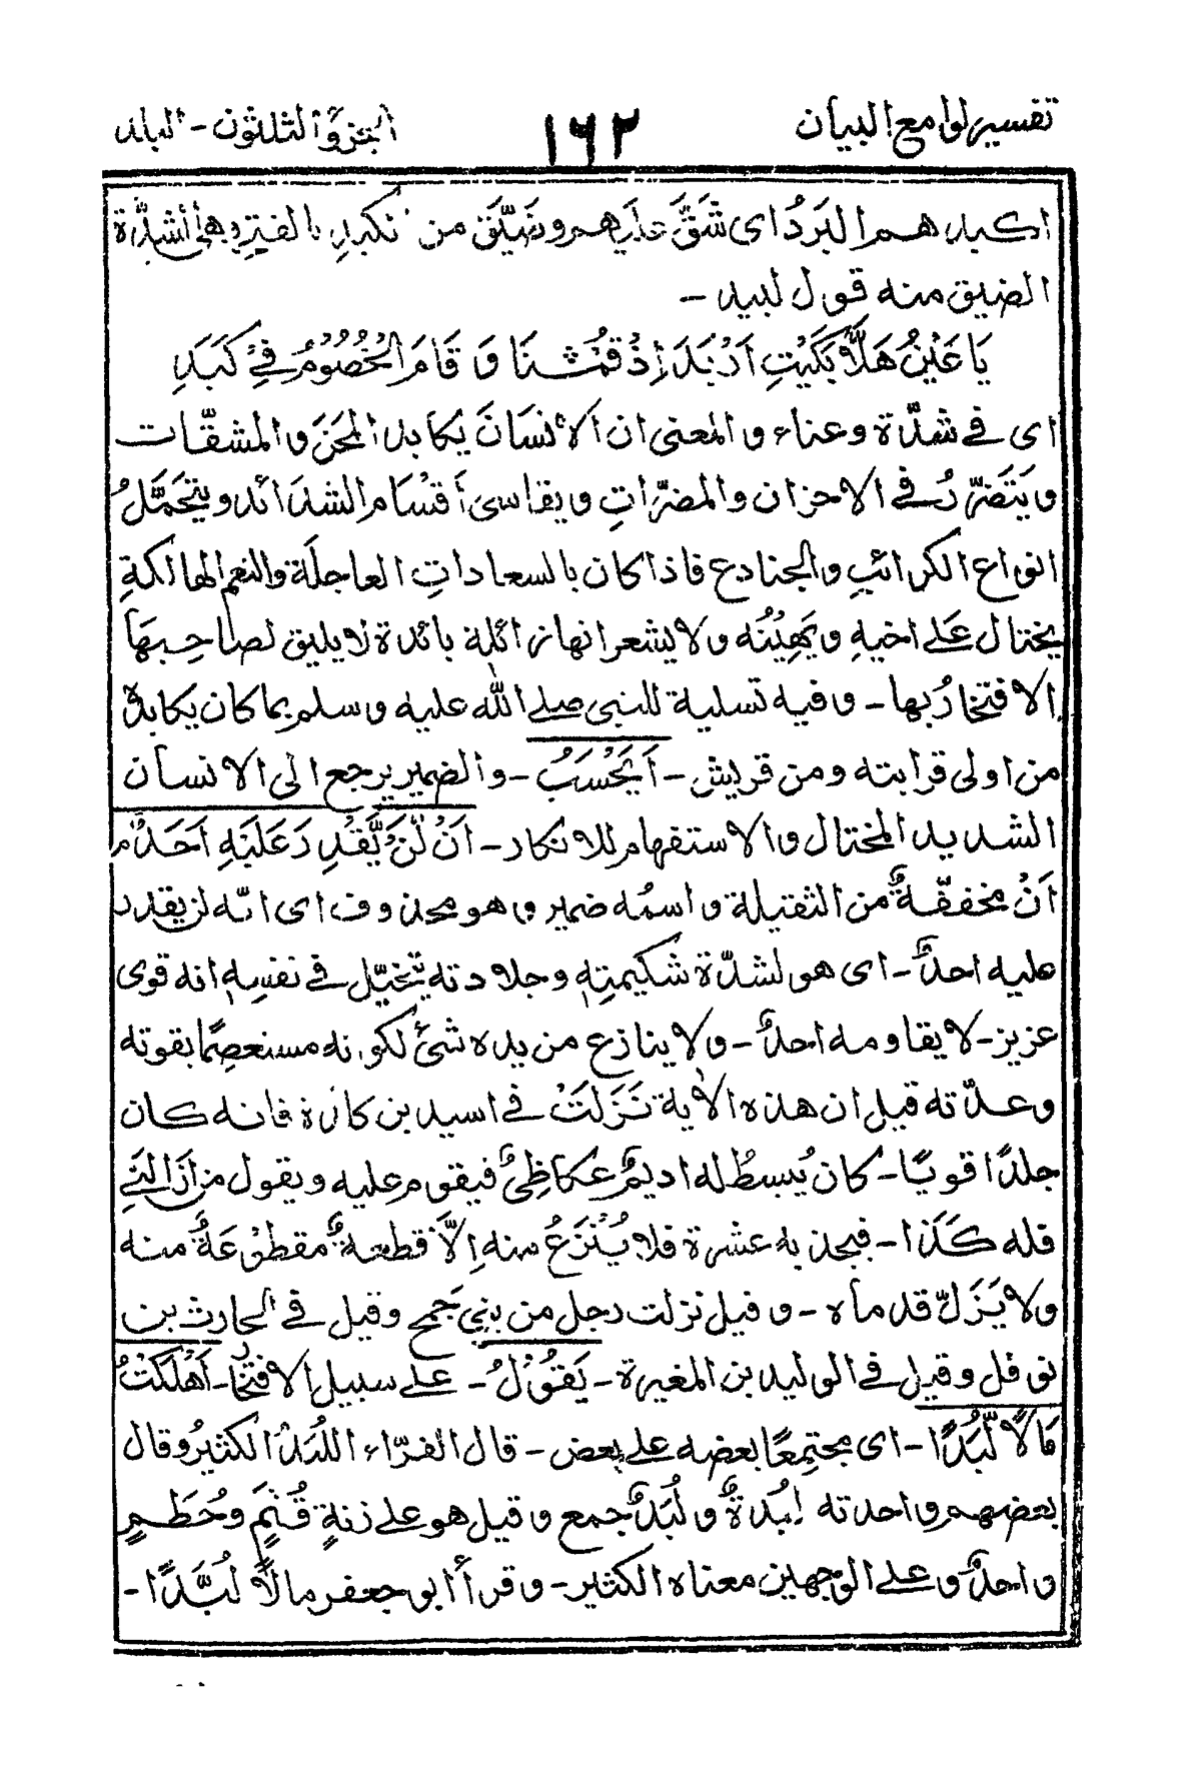 تفسير لوامع البيان ١٦٢ الجزو الثلثون - البلد
اكبد هم البَردُ اى شَقَّ عليهم وضَيَّق من نكبدِ بالفتح وهى أشدّة
الضيق منه قول لبيد -
يَا عَيْنُ هَلَّا بَكَيْتِ اَرْبَدَ اِذْ قُمْنَا وَ قَامَ الْخُصُوْمُ فِيْ كَبَدِ
اى فى شدّة وعناء و المعنى ان الأنْسَانَ يُكابد المِحَنَ و المشقّات
و يَتَضَرَّرُ فى الاحزان والمضرّاتِ و يقاسى أقسَام الشدَائد و يتحَمَّلُ
انواع الكرائبِ و الجنادع فاذا كان بالسعاداتِ العاجلَة والنعم الهالكةِ
يختال عَلى اخيهِ و يُهِيْنُه و لا يشعر انها زائلة بائدة لا يليق لصاحِبهَا
الافتخارُ بها - و فيه تسلية للنبى صلى الله عليه و سلم بما كان يكابدُ
من اولى قرابته و من قريش - اَيَحْسَبُ - و الضمير يرجع الى الانسان
الشديد المختال و الاستفهام للانكار - اَنْ لَّنْ يَّقْدِرَ عَلَيْهِ اَحَدٌ م
اَنْ مخففّةٌ من الثقيلة و اسمُه ضمير و هو محذوف اى انّه لن يقدر
عليه احدٌ - اى هو لشدّة شكيمتِه و جلادته يتخيّل فى نفسِه انه قوى
عزيز - لا يقاومه احدٌ - و لا ينازع من يده شئٌ لكونه مستعصِمًا بقوته
و عدّته قيل ان هذه الآية نَزَلَتْ فى اسيد بن كلدة فانه كان
جلدًا قويًا - كان يُبسطُ له اديمٌ عكاظِىٌّ فيقوم عليه و يقول من ازالنى
فله كَذَا - فيجذبه عشرة فلا يُنْزَعُ منه اِلَّا قطعةٌ مقطوْعَةٌ منه
ولا يَزَلّ قدماه - و قيل نزلت رجل من بنى جَمح و قيل فى الحارث بن
نوفل و قيل فى الوليد بن المغيرة - يَقُوْلُ - على سبيل الافتخار - اَهْلَكْتُ
مَالًا لُّبَدًا - اى مجتمِعًا بعضه على بعض - قال الفرّاء اللُبَدُ الكثيرُ و قال
بعضهم واحدته لُبدةٌ و لُبَدٌ جمع و قيل هو على زنةِ قُثَمٍ و حُطَمٍ
واحدٌ و على الوجهين معناه الكثير - و قرأ ابو جعفر مالًا لُبَّدًا -